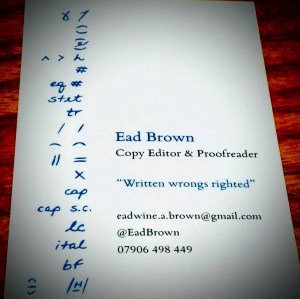 ^ > h
#
eq #
stet
tr
/ /
|| =
x
cap
cap s.c.
lc
ital
bf
/H/
Ead Brown
Copy Editor & Proofreader
“Written wrongs righted”
eadwine.a.brown@gmail.com
@EadBrown
07906 498 449